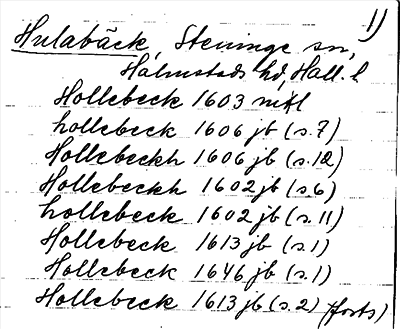 1)
Hulabäck, Steninge sn,
Halmstads hd, Hall. l
Hollebeck 1603 mtl
hollebeck 1606 jb (s.7)
Hollebeckh 1606 jb (s.12)
Hollebeckh 1602 jb (s.6)
hollebeck 1602 jb (s.11)
Hollebeck 1613 jb (s.1)
Hollebeck 1646 jb (s.1)
Hollebeck 1613 jb (s.2) (forts)